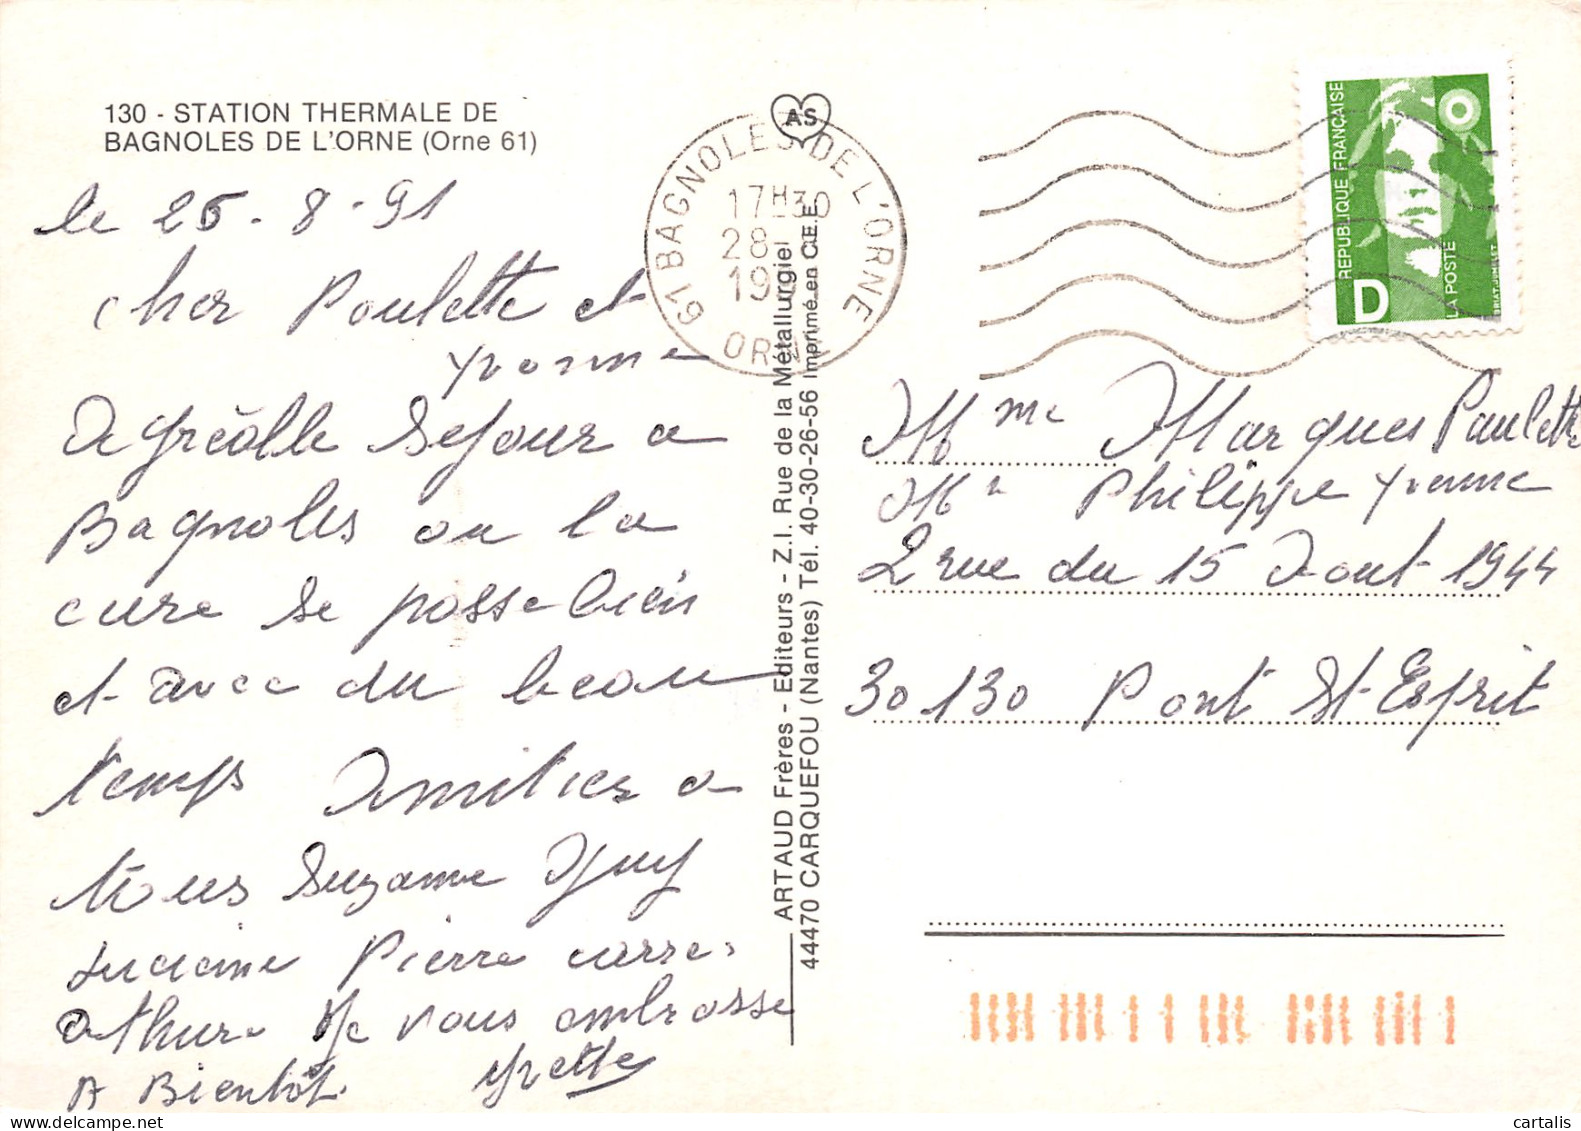 130 - STATION THERMALE DE
BAGNOLES DE L'ORNE (Orne 61)
le 25-8-91
Cher Paulette et
Yvonne
Agréable Sejour a
Bagnoles ou la
cure se passe bien
et avec du beau
temps Amities a
tous Suzanne Guy
Lucienne Pierre
Arthur Je vous embrasse
A Bientôt Yvette
AS
61 BAGNOLES DE L'ORNE
17H30
28
19
ORNE
ARTAUD Frères - Editeurs - Z.I. Rue de la Métallurgie
44470 CARQUEFOU (Nantes) Tél. 40-30-26-56 Imprimé en C.E.E.
RÉPUBLIQUE FRANÇAISE
D
LA POSTE
BRIAT-JUMELET
Mme Marques Paulette
Philippe Yvonne
2 rue du 15 Aout 1944
30130 Pont St-Esprit
cartalis